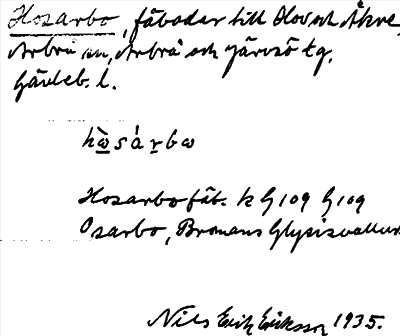 Hosarbo, fäbodar till Hov och Åkre,
Arbrå sn, Arbrå och Järvsö tg,
Gävleb. l.
hὼsárbω
Hosarbo fäb. k G 109 G 109
Osarbo, Bromans Glysisvallur
Nils Erik Eriksson 1935.